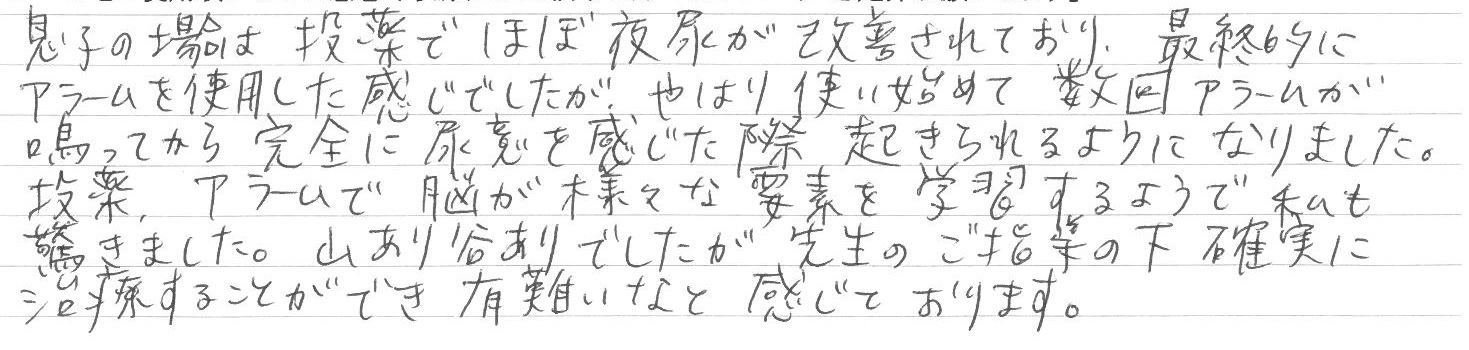 息子の場合は 投薬で ほぼ 夜尿が 改善されており、 最終的に
アラームを使用した感じでしたが、やはり 使い始めて 数回 アラームが
鳴ってから 完全に 尿意を感じた際 起きられるように なりました。
投薬、アラームで 脳が 様々な 要素を 学習するようで 私も
驚きました。山あり谷ありでしたが 先生の ご指導の下 確実に
治療することができ 有難いなと 感じて おります。